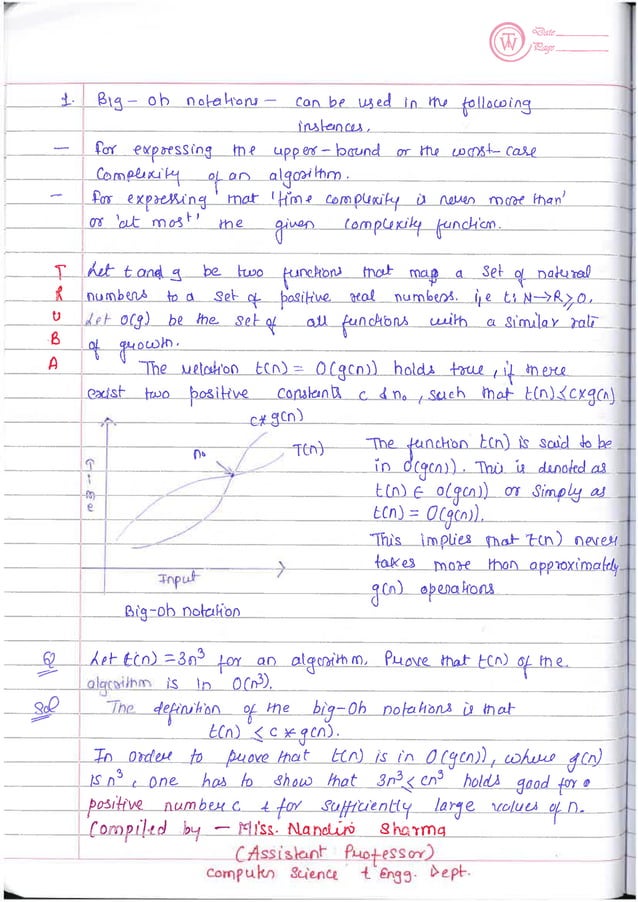 TW Date
Page
1. Big-oh notations - can be used in the following
instances.
- for expressing the upper-bound or the worst-case
complexity of an algorithm.
- for expressing that 'time complexity is never more than'
or 'at most' the given complexity function.
T Let t and g be two functions that map a set of natural
R numbers to a set of positive real numbers. i,e t: N→R≥0.
U Let O(g) be the set of all functions with a similar rate
B of growth.
A The relation t(n) = O(g(n)) holds true, if there
exist two positive constants c & n₀, such that t(n)≤c×g(n)
c*g(n)
n₀ T(n)
Time
Input
Big-oh notation
The function t(n) is said to be
in O(g(n)). This is denoted as
t(n) ∈ O(g(n)) or simply as
t(n) = O(g(n)).
This implies that t(n) never
takes more than approximately
g(n) operations
Q Let t(n) = 3n³ for an algorithm. Prove that t(n) of the
algorithm is in O(n³).
Sol The definition of the big-oh notations is that
t(n) ≤ c * g(n).
In order to prove that t(n) is in O(g(n)), where g(n)
is n³, one has to show that 3n³<cn³ holds good for a
positive number c & for sufficiently large values of n.
Compiled by - Miss. Nandini Sharma
(Assistant Professor)
Computer Science & Engg. Dept.